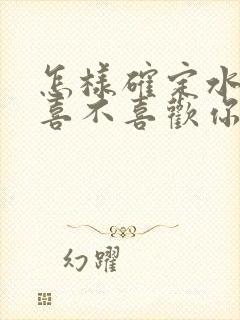 怎樣確定水
喜不喜歡你
幻躍